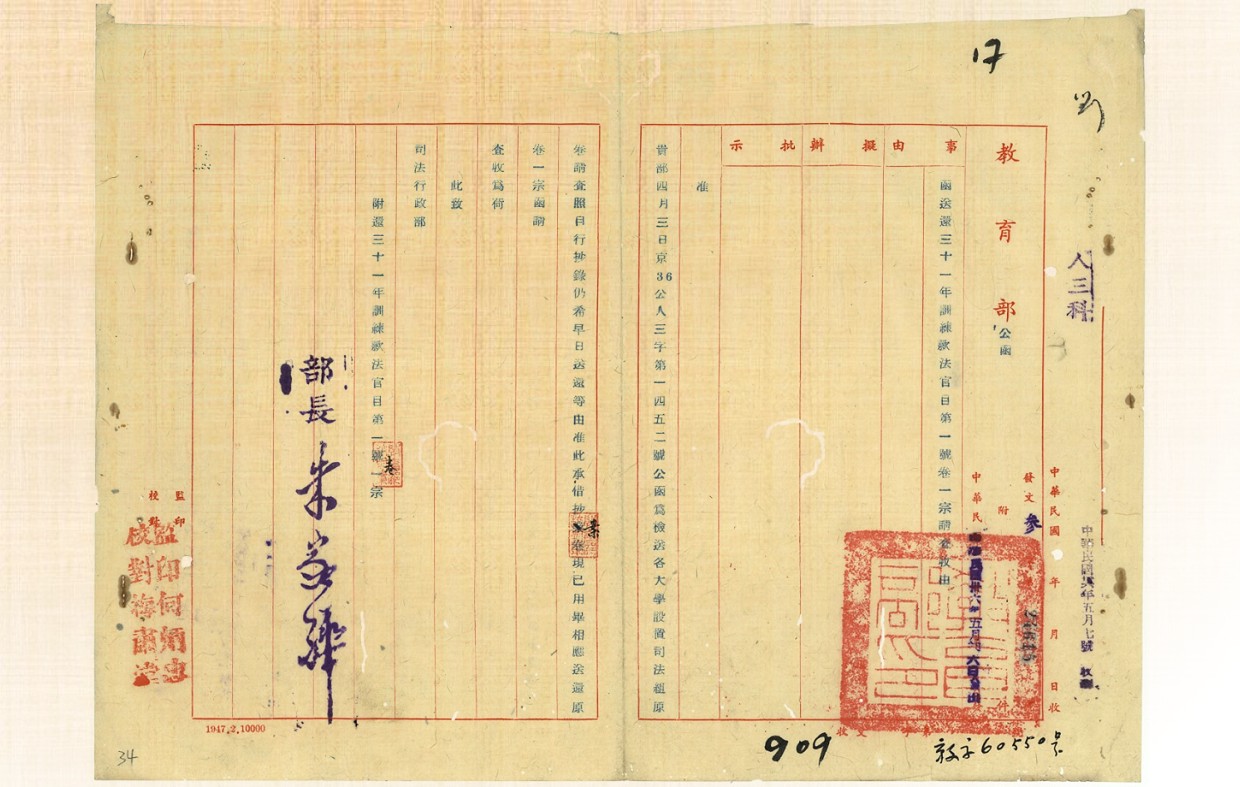 17
人三科
中華民國　年　月　日收
發文　參
教育部公函
附件
事由
擬辦
批示
函送還三十一年訓練歘法官目第一號卷一宗請查收由
准
貴部四月三日京36公人三字第一四五二號公函為檢送各大學設置司法組原
卷請查照自行抄錄仍希早日送還等由准此承借抄案卷現已用畢相應送還原
卷一宗函請
查收爲荷
此致
司法行政部
附還三十一年訓練歘法官目第一號卷一宗
部長朱家驊
監印
校對
監印何
校對
1947.2.10000
909
60550号
34